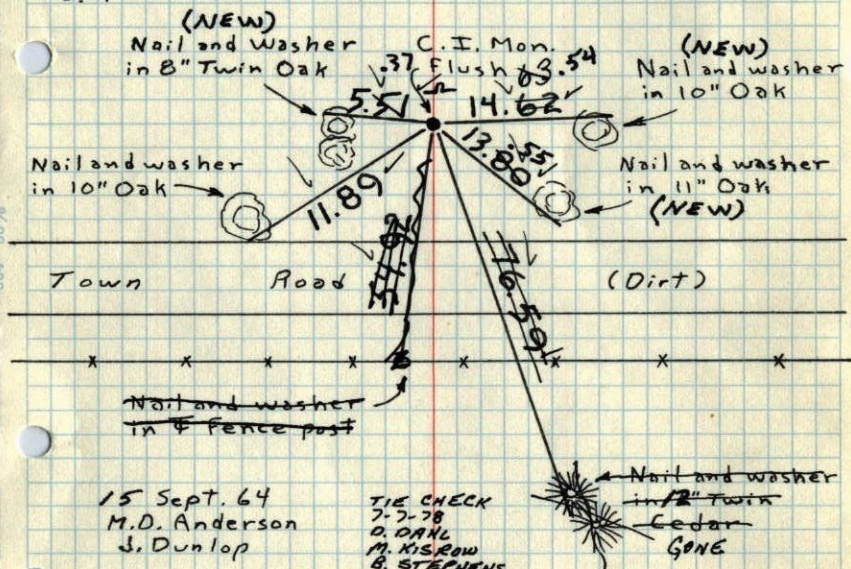 (NEW)
Nail and washer
in 8" Twin Oak
C.I. Mon.
Flush
.37
5.51
63 .54
14.62
(NEW)
Nail and washer
in 10" Oak
Nail and washer
in 10" Oak
11.89
13.80
.55
Nail and washer
in 11" Oak
(NEW)
Town Road (Dirt)
76.59
x x x x x x x x
Nail and washer
in ¢ Fence post
Nail and washer
in 12" Twin
Cedar
GONE
15 Sept. 64
M.D. Anderson
J. Dunlop
TIE CHECK
7-7-78
D. DAHL
M. KISROW
B. STEPHENS